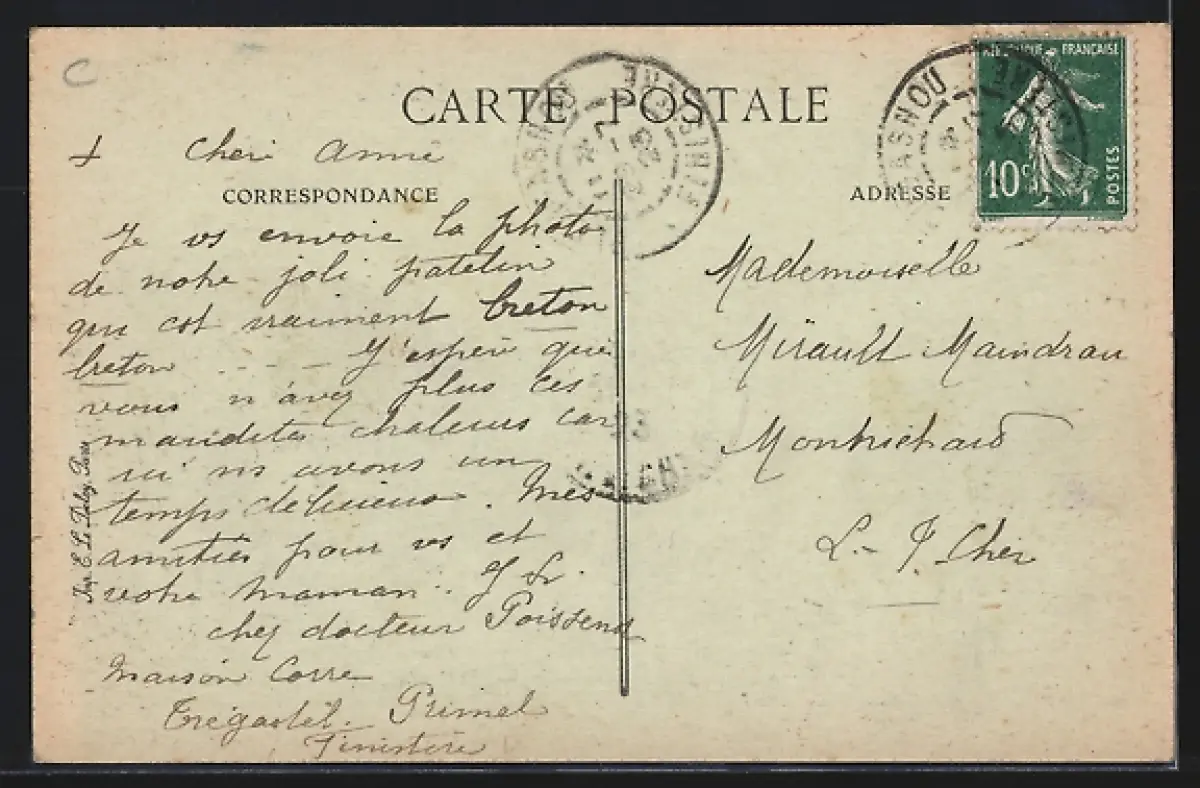 C
CARTE POSTALE
+ Cheri Anni
CORRESPONDANCE
Je vs envoie la photo
de notre joli patelin
qui est vraiment breton
breton ... J'espère que
vous n'avez plus ces
maudites chaleurs car
ici ns avons un
temps délicieux. Mes
amitiés pour vs et
votre maman.
chez docteur
Maison Corre
Trégastel-Primel
Finistère
Imp. E. Le Deley, Paris
ADRESSE
REPUBLIQUE FRANÇAISE
10c
POSTES
PLOUGASNOU
FINISTERE
Mademoiselle
Mirault Maindrau
Montrichard
L.-&-Cher